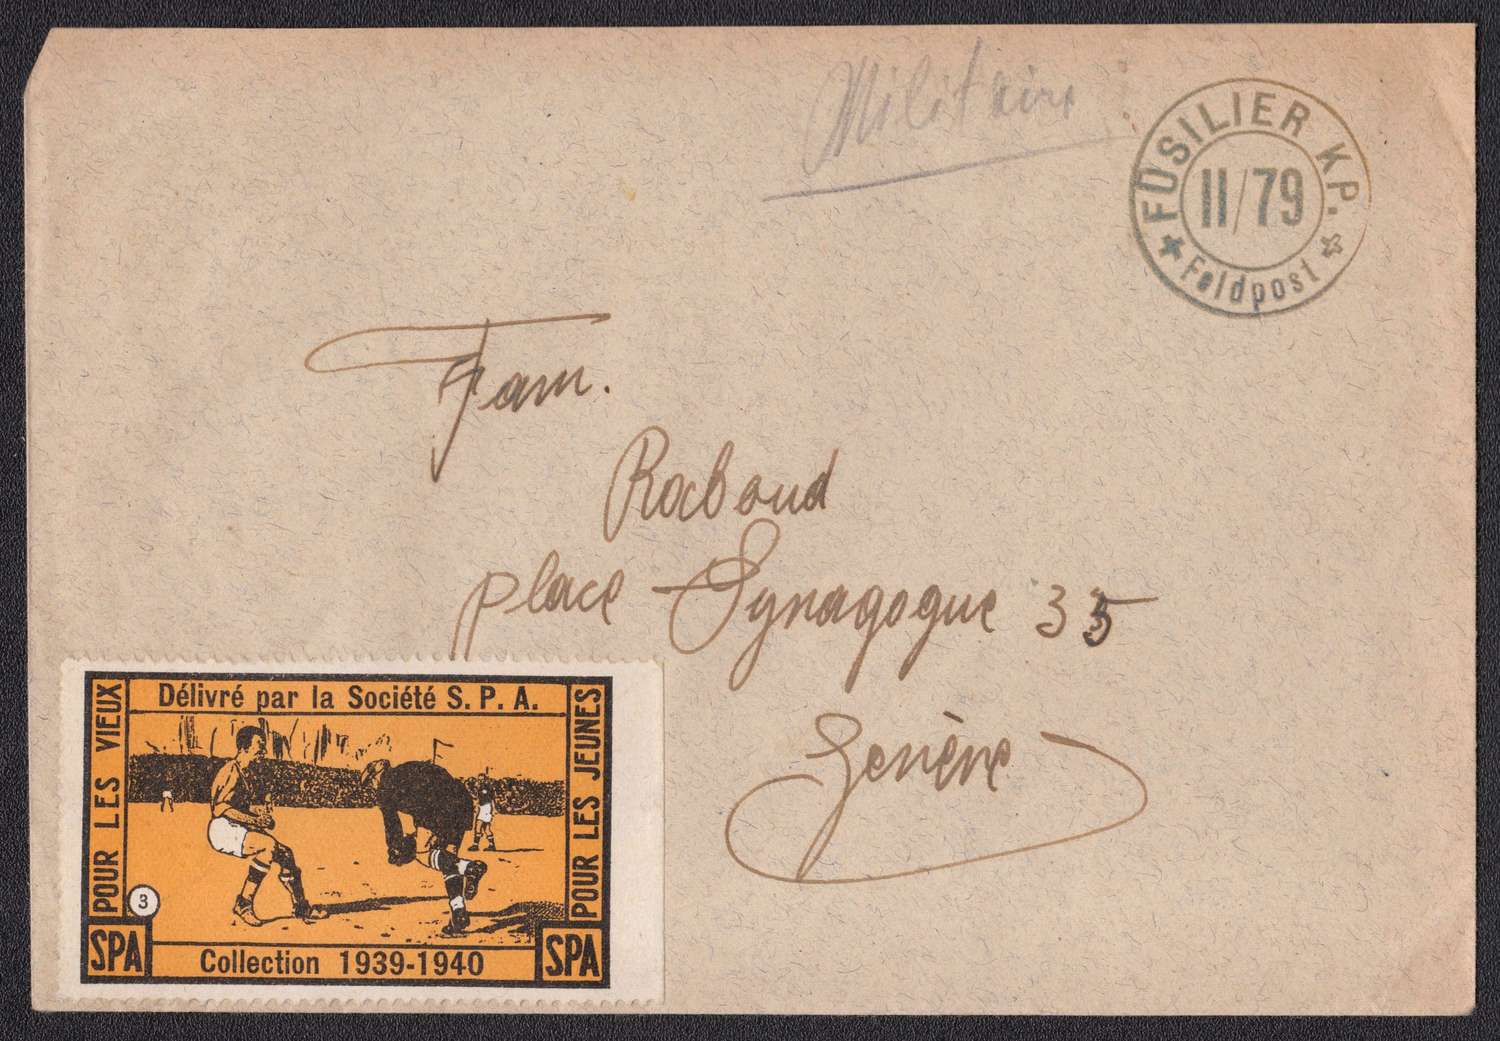 Militaire
FÜSILIER KP.
II/79
Feldpost
Fam.
Raboud
place Synagogue 35
Genève
Délivré par la Société S. P. A.
POUR LES VIEUX
POUR LES JEUNES
3
SPA
Collection 1939-1940
SPA